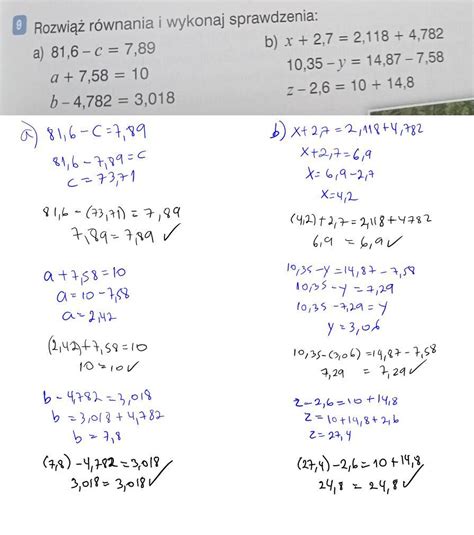 9 Rozwiąż równania i wykonaj sprawdzenia:
a) 81,6 – c = 7,89
a + 7,58 = 10
b – 4,782 = 3,018
b) x + 2,7 = 2,118 + 4,782
10,35 – y = 14,87 – 7,58
z – 2,6 = 10 + 14,8
a) 81,6 – c = 7,89
81,6 – 7,89 = c
c = 73,71
81,6 – (73,71) = 7,89
7,89 = 7,89 ✓
a + 7,58 = 10
a = 10 – 7,58
a = 2,42
(2,42) + 7,58 = 10
10 = 10 ✓
b – 4,782 = 3,018
b = 3,018 + 4,782
b = 7,8
(7,8) – 4,782 = 3,018
3,018 = 3,018 ✓
b) x + 2,7 = 2,118 + 4,782
x + 2,7 = 6,9
x = 6,9 – 2,7
x = 4,2
(4,2) + 2,7 = 2,118 + 4782
6,9 = 6,9 ✓
10,35 – y = 14,87 – 7,58
10,35 – y = 7,29
10,35 – 7,29 = y
y = 3,06
10,35 – (3,06) = 14,87 – 7,58
7,29 = 7,29 ✓
z – 2,6 = 10 + 14,8
z = 10 + 14,8 + 2,6
z = 27,4
(27,4) – 2,6 = 10 + 14,8
24,8 = 24,8 ✓